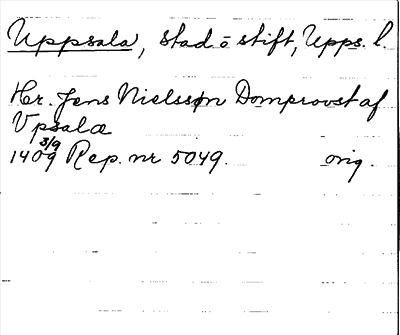 Uppsala, stad o stift, Upps. l.
Hr. Jens Nielssøn Domprovst af
Vpsalæ
1409 3/9 Rep. nr 5049. orig.